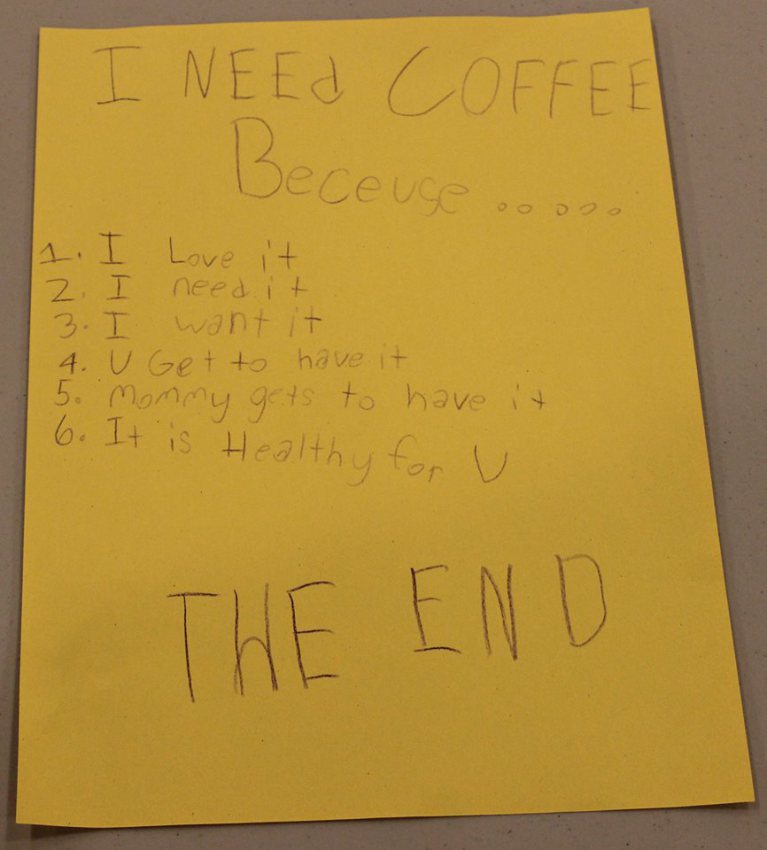 I NEEd COFFEE
Beceuse .....
1. I Love it
2. I need it
3. I want it
4. U Get to have it
5. mommy gets to have it
6. It is Healthy for U
THE END